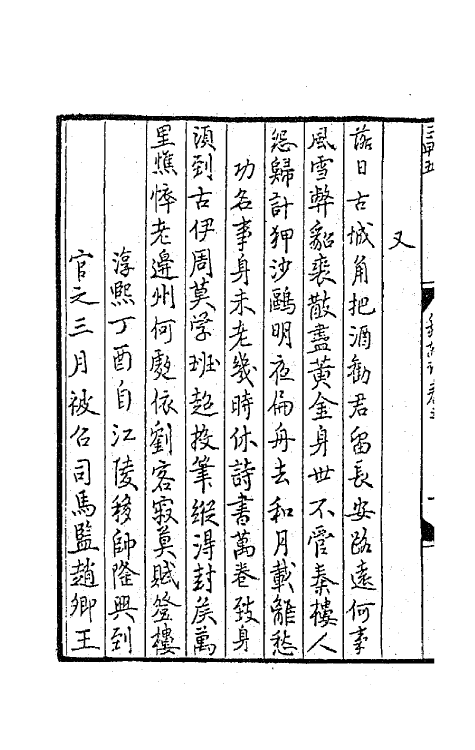 又
落日古城角把酒勸君留長安路遠何事
風雪弊貂裘散盡黃金身世不管秦樓人
怨歸計狎沙鷗明夜倫舟去和月載離愁
功名事身未老幾時休詩書萬卷致身
須到古伊周莫学班超投筆縱淂封矦萬
里憔悴老邉州何處依劉客寂寞賦登樓
淳熙丁酉自江陵移帥隆興到
官之三月被召司馬監趙卿王